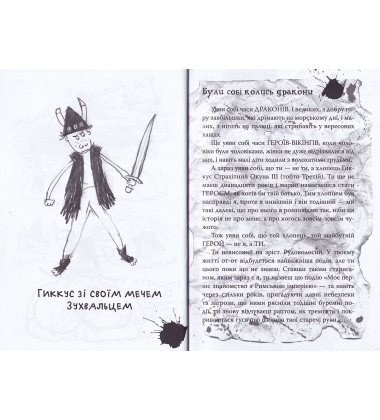 Гиккус зі своїм мечем
Зухвальцем
Були собі колись дракони
Уяви собі часи ДРАКОНІВ. І великих, з добру го-
ру завбільшки, які дрімають на морському дні, і ма-
лих, з ніготь на пальці, які стрибають у вересових
хащах.
Ще уяви собі часи ГЕРОЇВ-ВІКІНГІВ, коли чоловіки
були чоловіками, жінки не дуже
і навіть малі діти ходили з волохатими грудьми.
А зараз уяви собі, що ти — не ти, а хлопець Гик-
кус Страшний Окунь III (тобто Третій). Ти ще не
маєш дванадцяти років і марно намагаєшся стати
ГЕРОЄМ, як хотів би твій батько. Тим хлопцем був,
насправді, я, проте я нинішній і він тодішній — ми
такі далекі, що про нього я розповідаю так, ніби ця
історія не про мене, а про когось зовсім зовсім чу-
жого.
Тож уяви собі, що той хлопець, той майбутній
ГЕРОЙ — не я, а ТИ.
Ти невисокий на зріст. Рудоволосий. У твоєму
житті от-от відбудеться найважливіша подія, але ти
цього поки ще не знаєш. Ставши таким старига-
ном, яким зараз є я, ти назвеш цю подію «Моє пер-
ше знайомство з Римською імперією» — та навіть
через стільки років, пригадуючи давні небезпеки
та загрози, що нами рясніли тодішні буремні по-
дії, ти знову відчуваєш раптом, як тремтять і по-
криваються гусячою шкірою твої старечі руки...